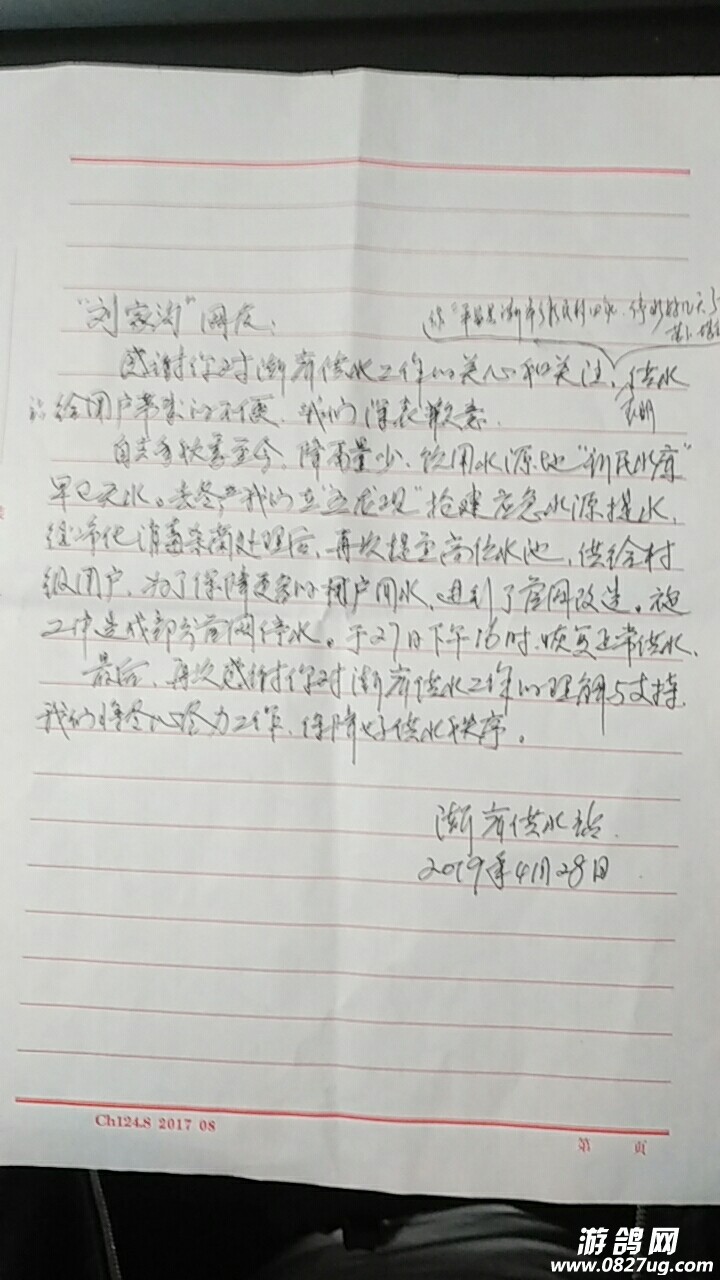 “刘家沟”网友：
感谢你对澌岸供水工作的关心和关注，供水
给用户带来的不便，我们深表歉意。
自去年秋季至今，降雨量少，饮用水源地“新民水库”
早已无水。去冬我们在抢建应急水源提水，
经净化消毒杀菌处理后，再次提至高位水池，供给村
级用户，为了保障更多的用户用水，进行了管网改造。施
工中造成部分管网停水。于27日下午16时恢复正常供水。
最后，再次感谢你对澌岸供水工作的理解与支持，
我们将尽心尽力工作，保障好供水秩序。
澌岸供水站
2019年4月28日
Ch124.8 2017 08
第 页
游鸽网
www.0827ug.com